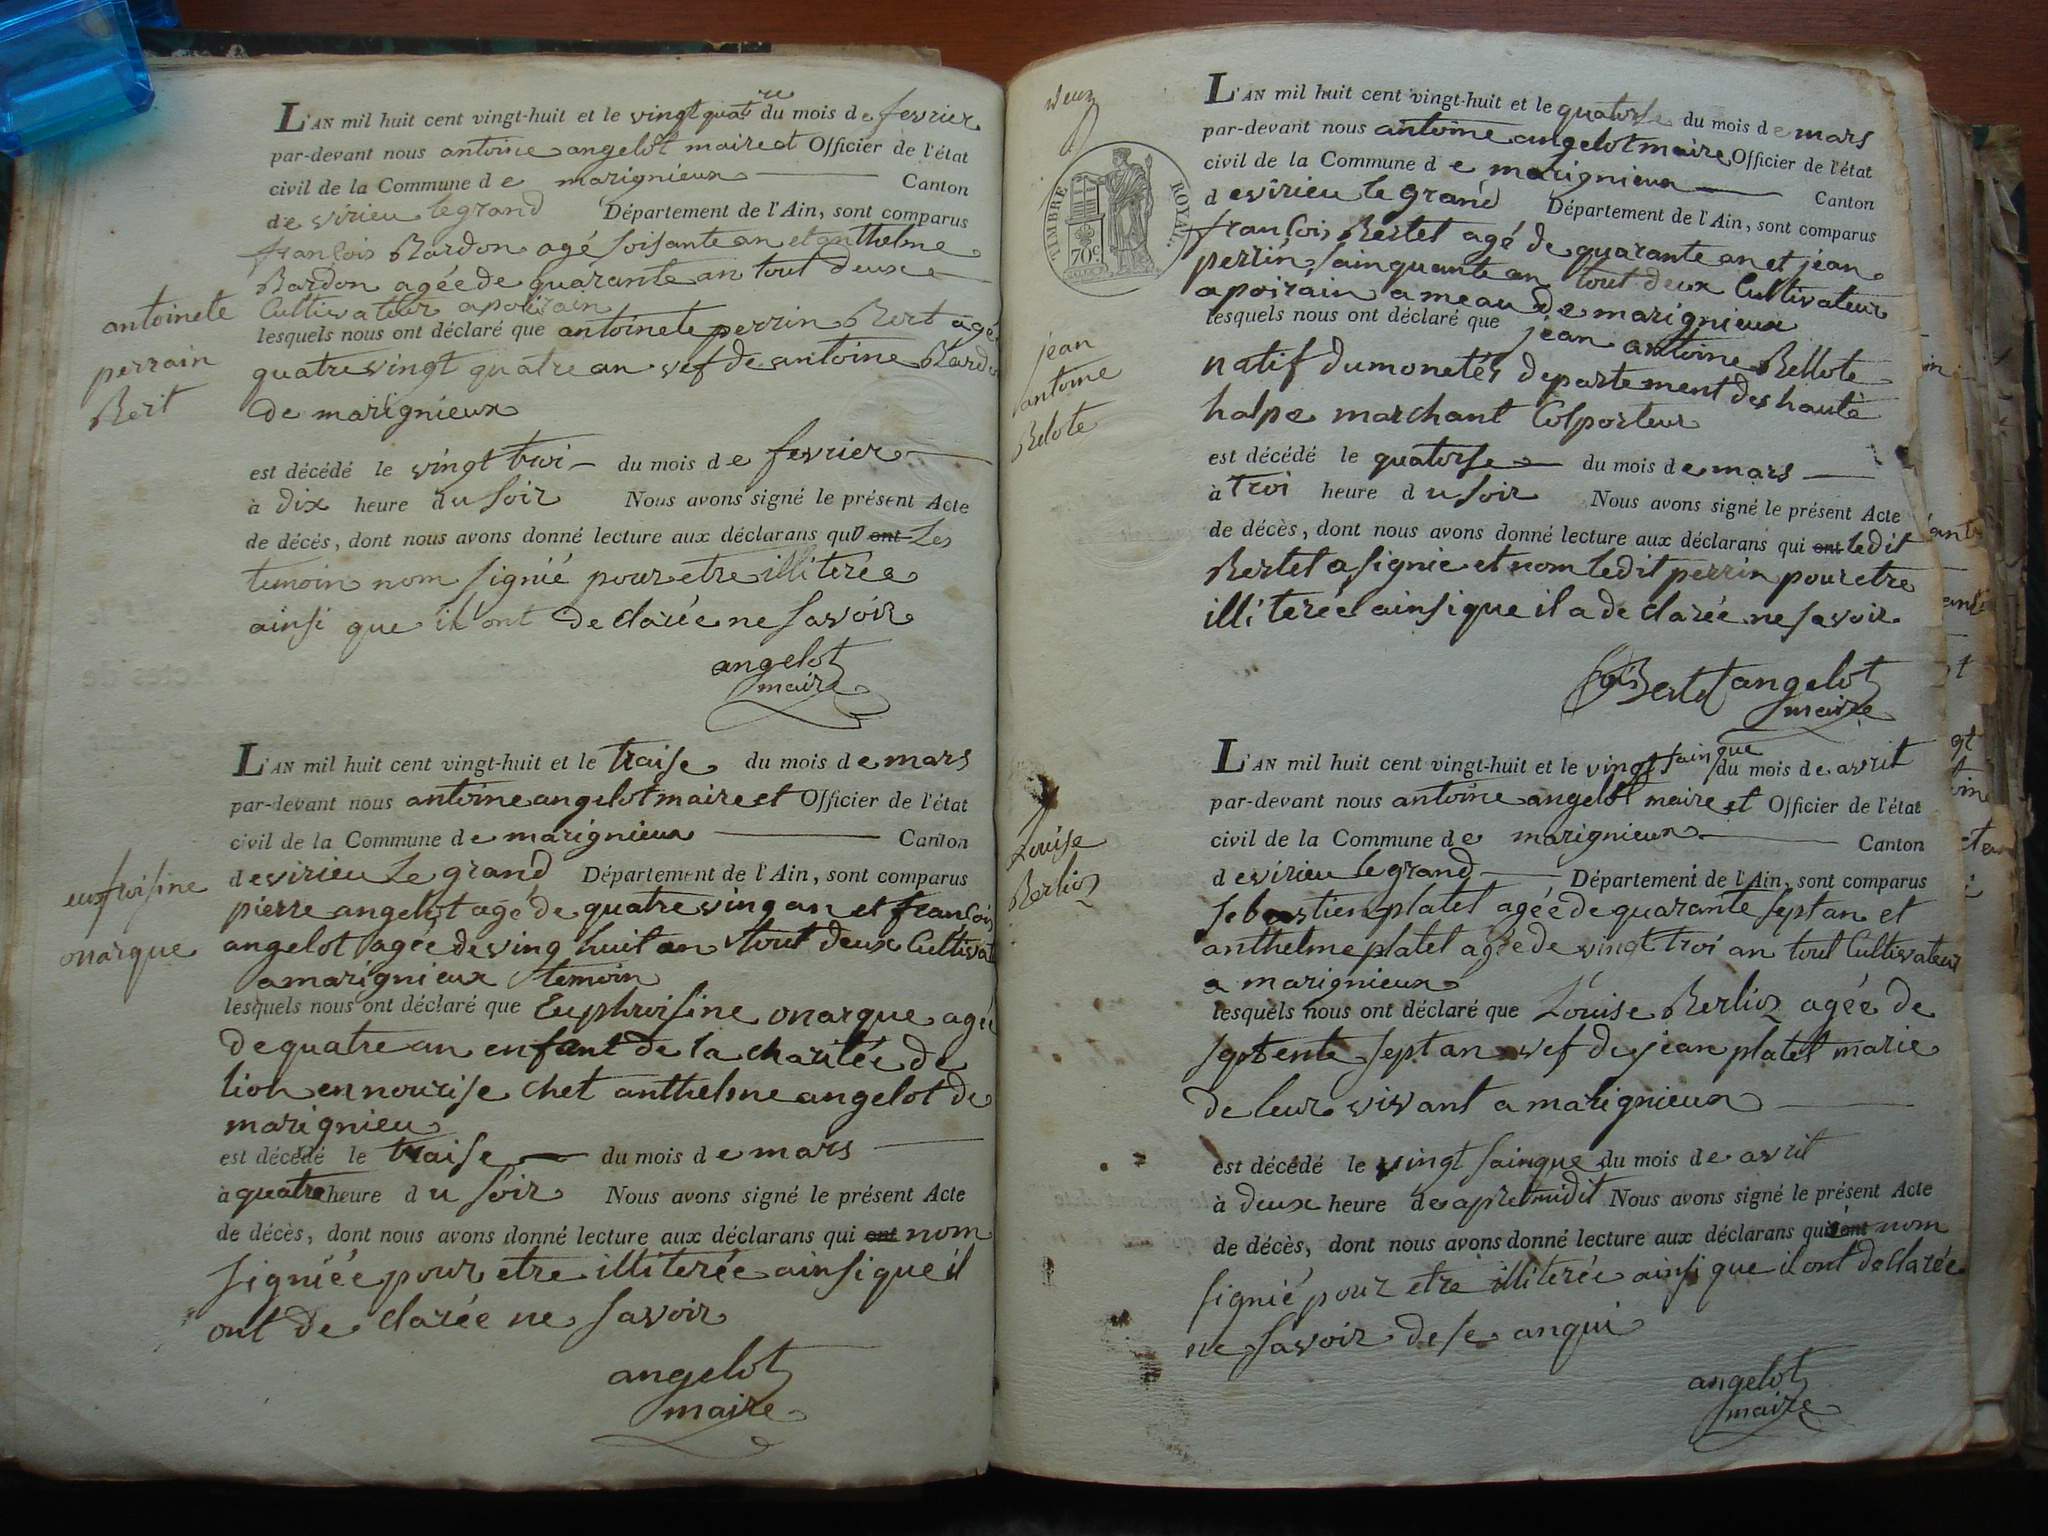 L'AN mil huit cent vingt-huit et le vingt quatre du mois de fevrier
par-devant nous antoine angelot maire et Officier de l'état
civil de la Commune de marignieux Canton
de virieu le grand Département de l'Ain, sont comparus
françois Bardon agé soisante an et anthelme
Bardon agée de quarante an tout deux
Cultivateur a poirain
lesquels nous ont déclaré que antoinete perrin Bert agé
quatre vingt quatre an vef de antoine Bardo
de marignieux
est décédé le vingt troi du mois de fevrier
à dix heure du soir Nous avons signé le présent Acte
de décès, dont nous avons donné lecture aux déclarans qui ont Les
temoin nom signié pour etre illiterée
ainsi que il ont declarée ne savoir
angelot
maire
antoinete
perrain
Bert
L'AN mil huit cent vingt-huit et le traise du mois de mars
par-devant nous antoine angelot maire et Officier de l'état
civil de la Commune de marignieux Canton
de virieu Le grand Département de l'Ain, sont comparus
pierre angelot agé de quatre ving an et françois
angelot agée de ving huit an tout deux Cultivat
a marignieux temoin
lesquels nous ont déclaré que Euphroisine onarque agée
de quatre an enfant de la charitée de
lion en nourise chet anthelme angelot de
marignieu
est décédé le traise du mois de mars
à quatre heure du soir Nous avons signé le présent Acte
de décès, dont nous avons donné lecture aux déclarans qui ont nom
signiée pour etre illiterée ainsi que il
ont declarée ne savoir
angelot
maire
eufroisine
onarque
deux
TIMBRE ROYAL
70c
L'AN mil huit cent vingt-huit et le quatorse du mois de mars
par-devant nous antoine angelot maire Officier de l'état
civil de la Commune de marignieux Canton
de virieu le grand Département de l'Ain, sont comparus
françois Bertet agé de quarante an et jean
perrin sainquante an tout deux Cultivateur
a poirain ameau de marignieux
lesquels nous ont déclaré que jean antoine Bellote
natif du monetés departement des haute
halpe marchant Colporteur
est décédé le quatorse du mois de mars
à troi heure du soir Nous avons signé le présent Acte
de décès, dont nous avons donné lecture aux déclarans qui ont ledit
Bertet a signie et nom ledit perrin pour etre
illiterée ainsi que il a declarée ne savoir
Bertet angelot
maire
jean
antoine
Belote
L'AN mil huit cent vingt-huit et le vingt sainque du mois de avrit
par-devant nous antoine angelot maire et Officier de l'état
civil de la Commune de marignieux Canton
de virieu le grand Département de l'Ain, sont comparus
sebastien platet agée de quarante sept an et
anthelme platet agée de vingt troi an tout Cultivateur
a marignieux
lesquels nous ont déclaré que Louise Berlioz agée de
septente sept an vef de jean platet marie
de leur vivant a marignieux
est décédé le vingt sainque du mois de avril
à deux heure de apret midit Nous avons signé le présent Acte
de décès, dont nous avons donné lecture aux déclarans qui ont nom
signié pour etre illiterée ainsi que il ont declarée
ne savoir de se anqui
angelot
maire
Louise
Berlioz